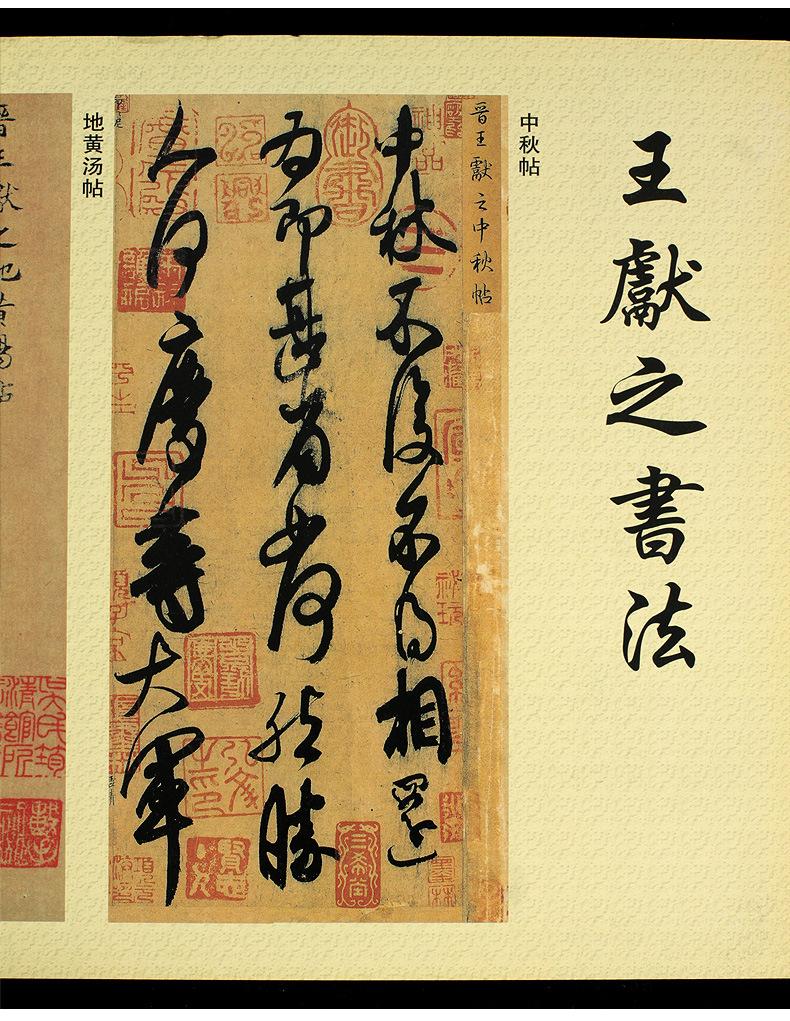 王獻之書法
中秋帖
晋王獻之中秋帖
中秋不復不得相還
為即甚省如何然勝
人何慶等大軍
地黄汤帖
晋王獻之地黄湯帖
御書